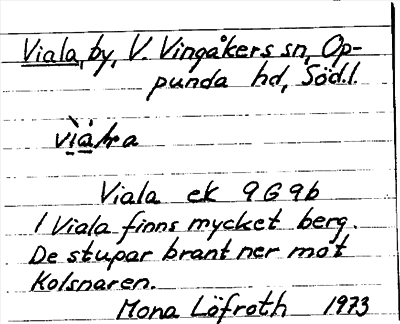 Viala, by, V. Vingåkers sn, Op-
punda hd, Södl.
Viala ek 9G9b
I Viala finns mycket berg.
De stupar brant ner mot
Kolsnaren.
Mona Löfroth 1973